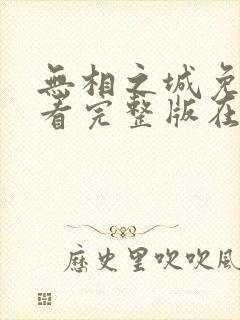 無相之城免
看完整版在
歷史里吹吹風